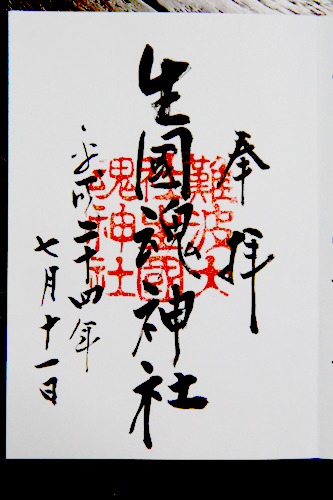 奉拝
生國魂神社
難波大
社生國
魂神社
平成二十四年
七月十一日